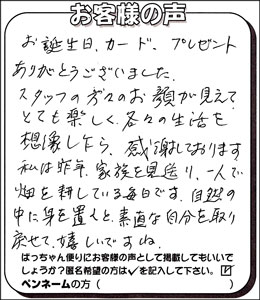 お客様の声
お誕生日、カード、プレゼント
ありがとうございました。
スタッフの方々のお顔が見えて
とても楽しく、各々の生活を
想像したり、感謝しております
私は昨年、家族を見送り、一人で
畑を耕している毎日です。自然の
中に身を置くと、素直な自分を取り
戻せて、嬉しいですね。
ばっちゃん便りにお客様の声として掲載してもいいで
しょうか?匿名希望の方は✓を記入して下さい。☑
ペンネームの方(　　　　　　　　)